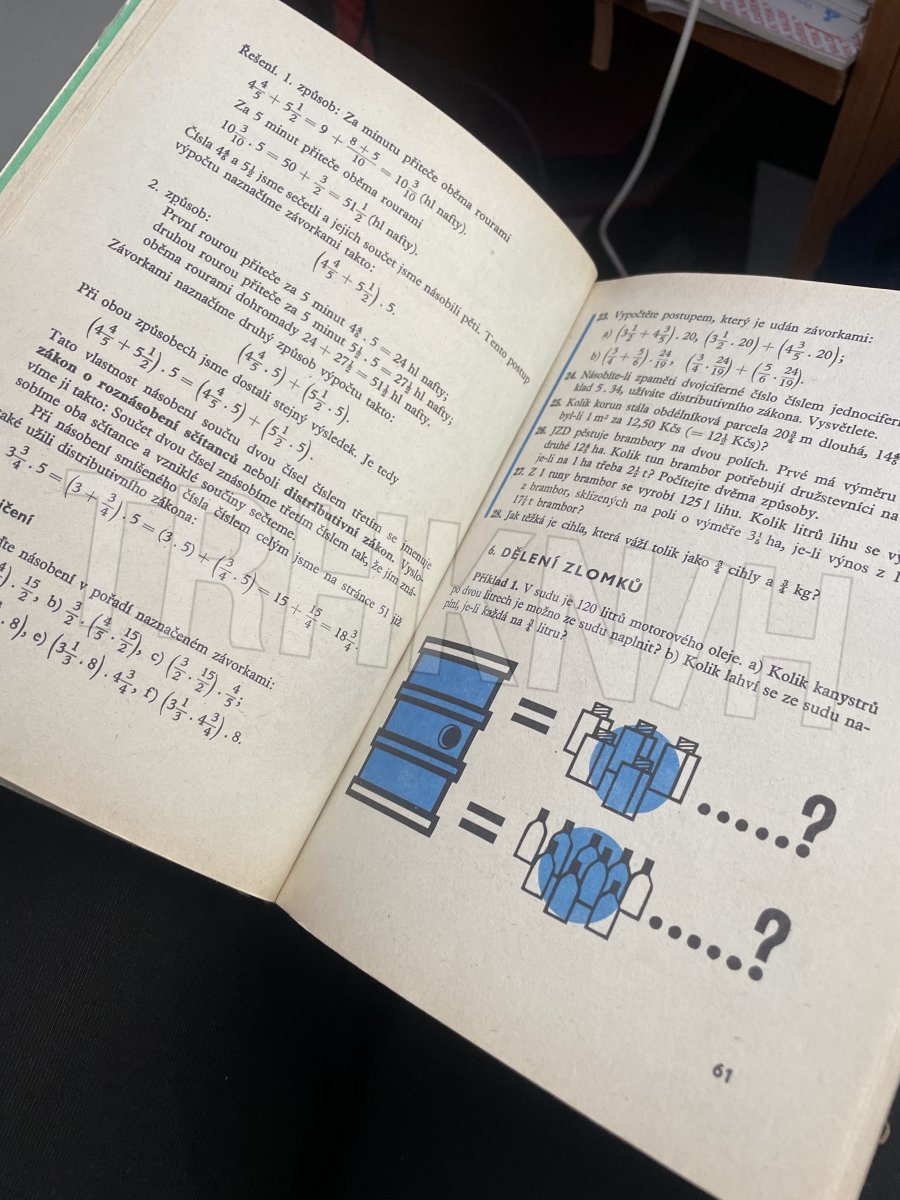 Řešení. 1. způsob: Za minutu přiteče oběma rourami
4 4/5 + 5 1/2 = 9 + (8 + 5)/10 = 10 3/10 (hl nafty).
Za 5 minut přiteče oběma rourami
10 3/10 . 5 = 50 + 3/2 = 51 1/2 (hl nafty).
Čísla 4 4/5 a 5 1/2 jsme sečetli a jejich součet jsme násobili pěti. Tento postup
výpočtu naznačíme závorkami takto:
(4 4/5 + 5 1/2) . 5.
2. způsob:
První rourou přiteče za 5 minut 4 4/5 . 5 = 24 hl nafty;
druhou rourou přiteče za 5 minut 5 1/2 . 5 = 27 1/2 hl nafty;
oběma rourami dohromady 24 + 27 1/2 = 51 1/2 hl nafty.
Závorkami naznačíme druhý způsob výpočtu takto:
(4 4/5 . 5) + (5 1/2 . 5).
Při obou způsobech jsme dostali stejný výsledek. Je tedy
(4 4/5 + 5 1/2) . 5 = (4 4/5 . 5) + (5 1/2 . 5).
Tato vlastnost násobení součtu dvou čísel číslem třetím se jmenuje
zákon o roznásobení sčítanců neboli distributivní zákon. Vyslo-
víme ji takto: Součet dvou čísel znásobíme třetím číslem tak, že jím zná-
sobíme oba sčítance a vzniklé součiny sečteme.
Při násobení smíšeného čísla číslem celým jsme na stránce 51 již
také užili distributivního zákona:
3 3/4 . 5 = (3 + 3/4) . 5 = (3 . 5) + (3/4 . 5) = 15 + 15/4 = 18 3/4.
násobení v pořadí naznačeném závorkami:
. 15/2, b) 3/2 . (4/5 . 15/2), c) (3/2 . 15/2) . 4/5;
. 8), e) (3 1/3 . 8) . 4 3/4, f) (3 1/3 . 4 3/4) . 8.
23. Vypočtěte postupem, který je udán závorkami:
a) (3 1/2 + 4 3/5) . 20, (3 1/2 . 20) + (4 3/5 . 20);
b) (3/4 + 5/6) . 24/19, (3/4 . 24/19) + (5/6 . 24/19).
24. Násobíte-li zpaměti dvojciferné číslo číslem jednocifern
klad 5 . 34, užíváte distributivního zákona. Vysvětlete.
25. Kolik korun stála obdélníková parcela 20 m dlouhá, 14
byl-li 1 m² za 12,50 Kčs (= 12 1/2 Kčs)?
26. JZD pěstuje brambory na dvou polích. Prvé má výměru
druhé 12 ha. Kolik tun brambor potřebují družstevníci na
je-li na 1 ha třeba 2 t? Počítejte dvěma způsoby.
27. Z 1 tuny brambor se vyrobí 125 l lihu. Kolik litrů lihu se vy
z brambor, sklizených na poli o výměře 3 ha, je-li výnos z 1
17 t brambor?
28. Jak těžká je cihla, která váží tolik jako 3/4 cihly a 3/4 kg?
6. DĚLENÍ ZLOMKŮ
Příklad 1. V sudu je 120 litrů motorového oleje. a) Kolik kanystrů
po dvou litrech je možno ze sudu naplnit? b) Kolik lahví se ze sudu na-
plní, je-li každá na 3/4 litru?
= ......?
= ......?
61
TRHKNIH